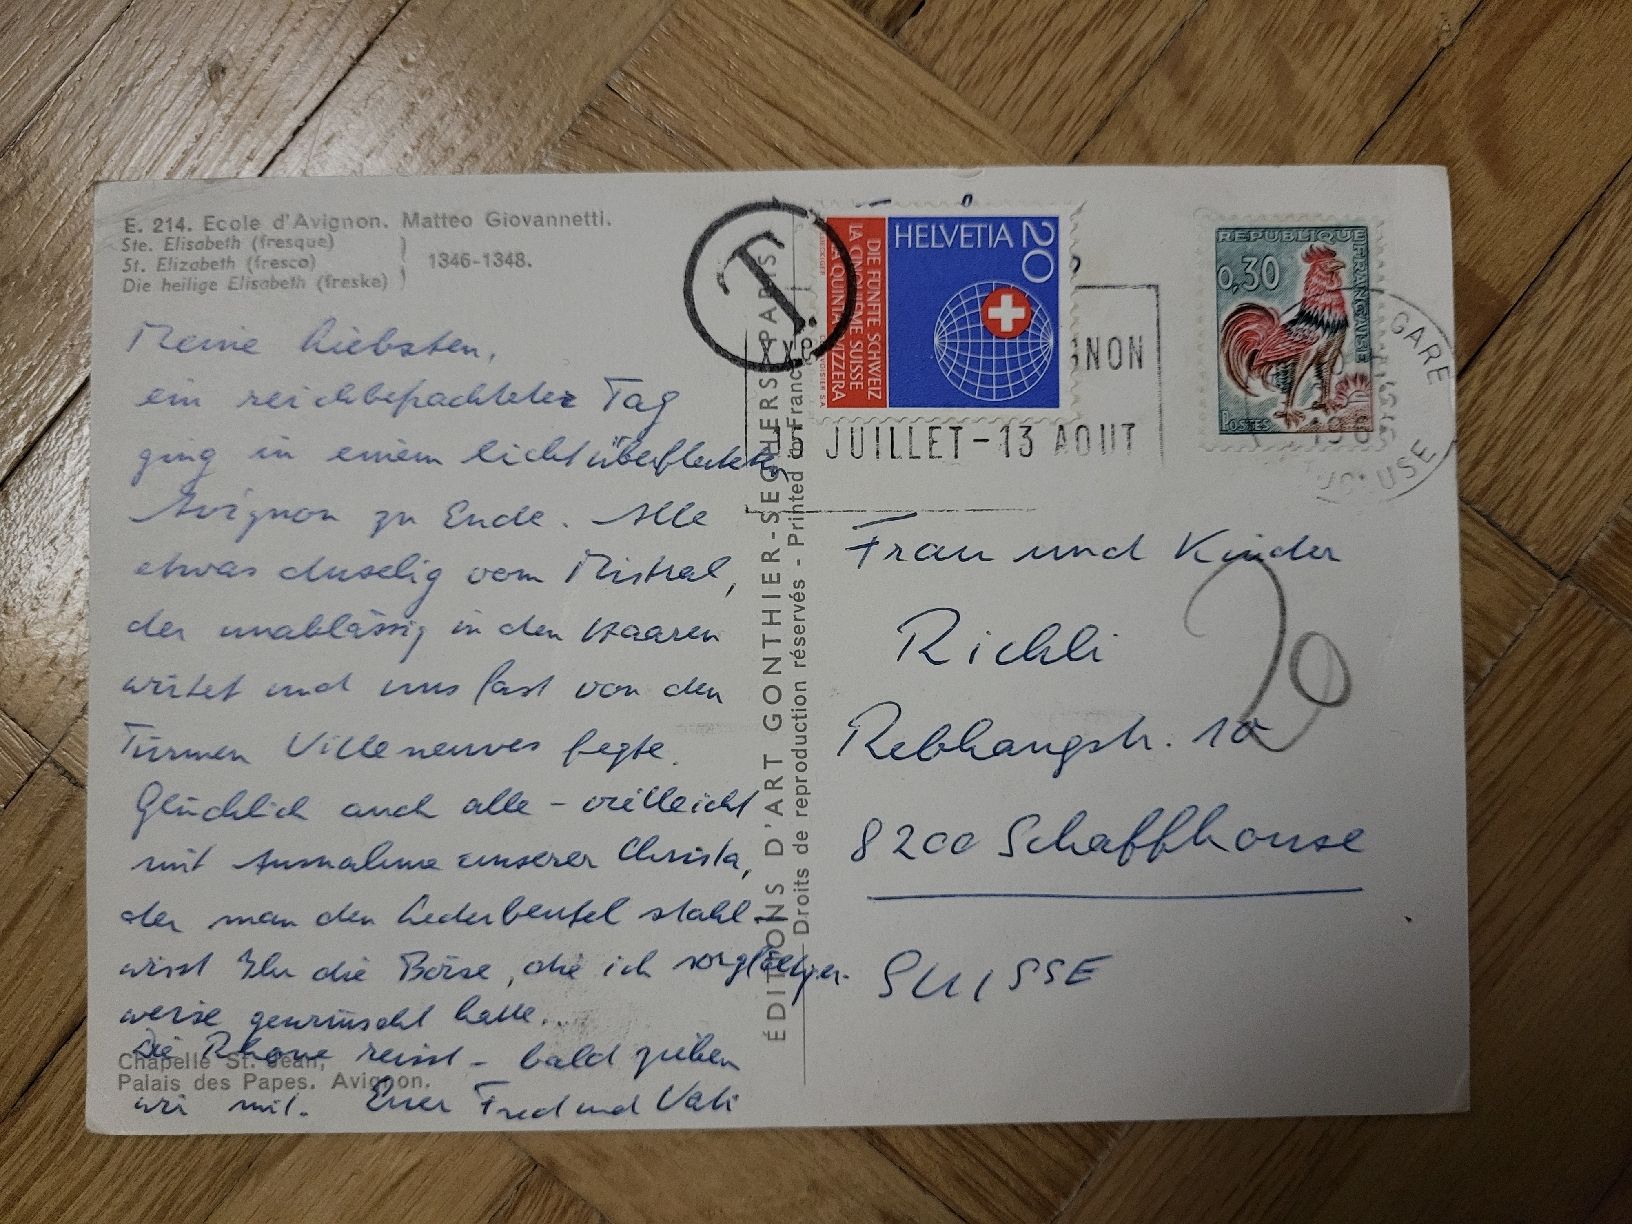 E. 214. Ecole d'Avignon. Matteo Giovannetti.
Ste. Elisabeth (fresque)
St. Elizabeth (fresco)
Die heilige Elisabeth (freske)
1346-1348.
Meine Liebsten,
ein reichbefrachteter Tag
ging in einem lichtüberfluteten
Avignon zu Ende. Alle
etwas duselig vom Mistral,
der unablässig in den Haaren
wütet und uns fast von den
Türmen Villeneuves fegte.
Glücklich auch alle - vielleicht
mit Ausnahme unserer Christa,
der man den Lederbeutel stahl -
wisst Ihr die Börse, die ich sorgfältiger-
weise gewünscht hatte...
Die Rhone reisst - bald ziehen
wir mit. Euer Fred und Vati
Chapelle St. Jean,
Palais des Papes. Avignon.
ÉDITIONS D'ART GONTHIER-SEGHERS PARIS
Droits de reproduction réservés - Printed in France
T.
HELVETIA 20
DIE FÜNFTE SCHWEIZ
LA CINQUIÈME SUISSE
LA QUINTA SVIZZERA
COURVOISIER S.A.
REPUBLIQUE FRANÇAISE
0,30
POSTES
XXe
GNON
JUILLET - 13 AOUT
GARE
Frau und Kinder
Richli
Rebhangstr. 10
20
8200 Schaffhouse
SUISSE